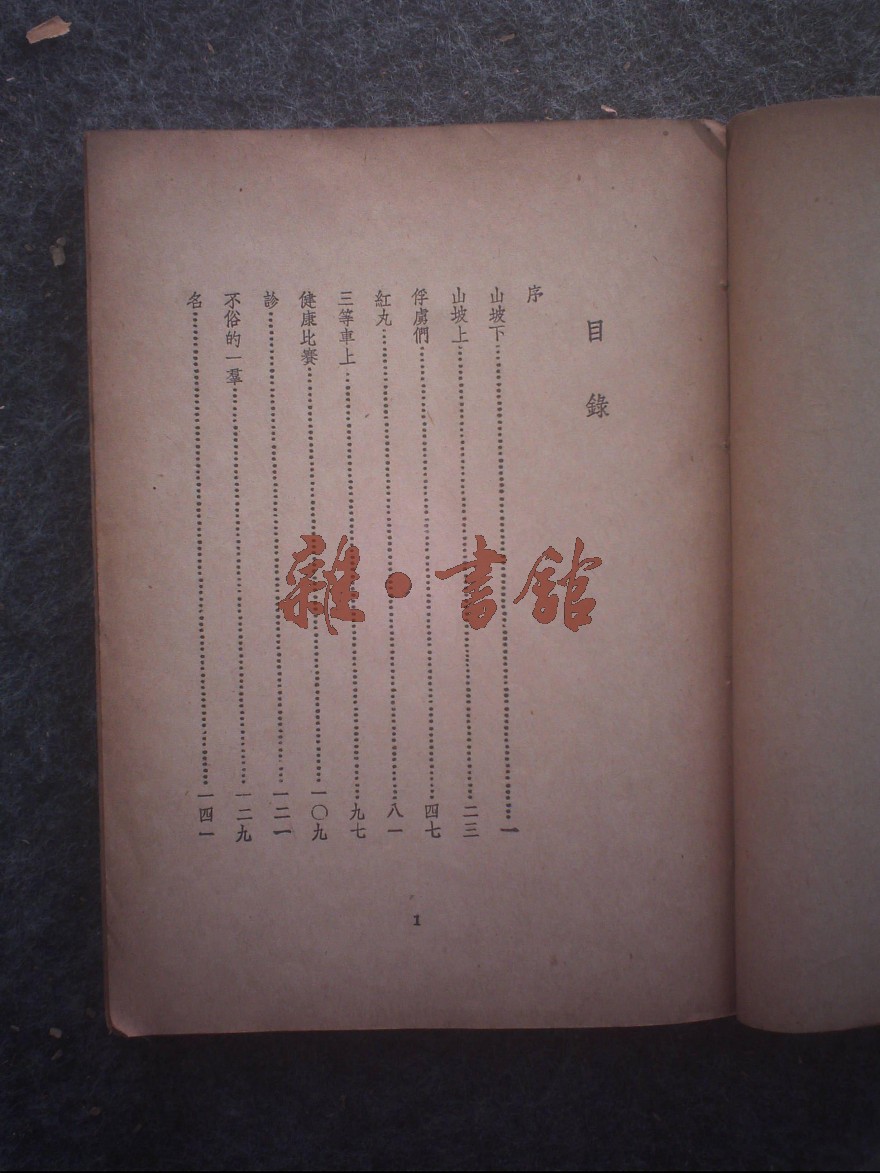 目錄
序
山坡下⋯⋯一
山坡上⋯⋯二三
俘虜們⋯⋯四七
紅丸⋯⋯八一
三等車上⋯⋯九七
健康比賽⋯⋯一〇九
診⋯⋯一二一
不俗的一羣⋯⋯一二九
名⋯⋯一四一
1
雜·書舘